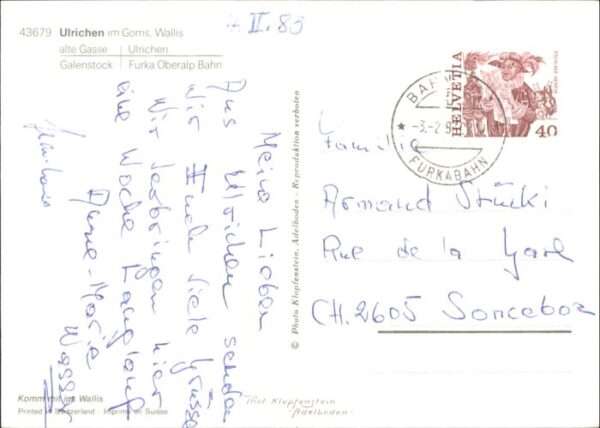 43679 Ulrichen im Goms, Wallis
alte Gasse | Ulrichen
Galenstock | Furka Oberalp Bahn
II. 83
Meine Lieben
Aus Ulrichen senden
wir Euch viele Grüsse
Wir verbringen hier
eine Woche Langlauf
Anne-Marie
Wasser
HELVETIA
40
BAH
-3.-2.8
FURKABAHN
© Photo Klopfenstein, Adelboden - Reproduktion verboten
Familie
Armand Stücki
Rue de la Gare
CH. 2605 Sonceboz
Komm mit ins Wallis
Printed in Switzerland Imprimé en Suisse
Phot Klopfenstein
Adelboden